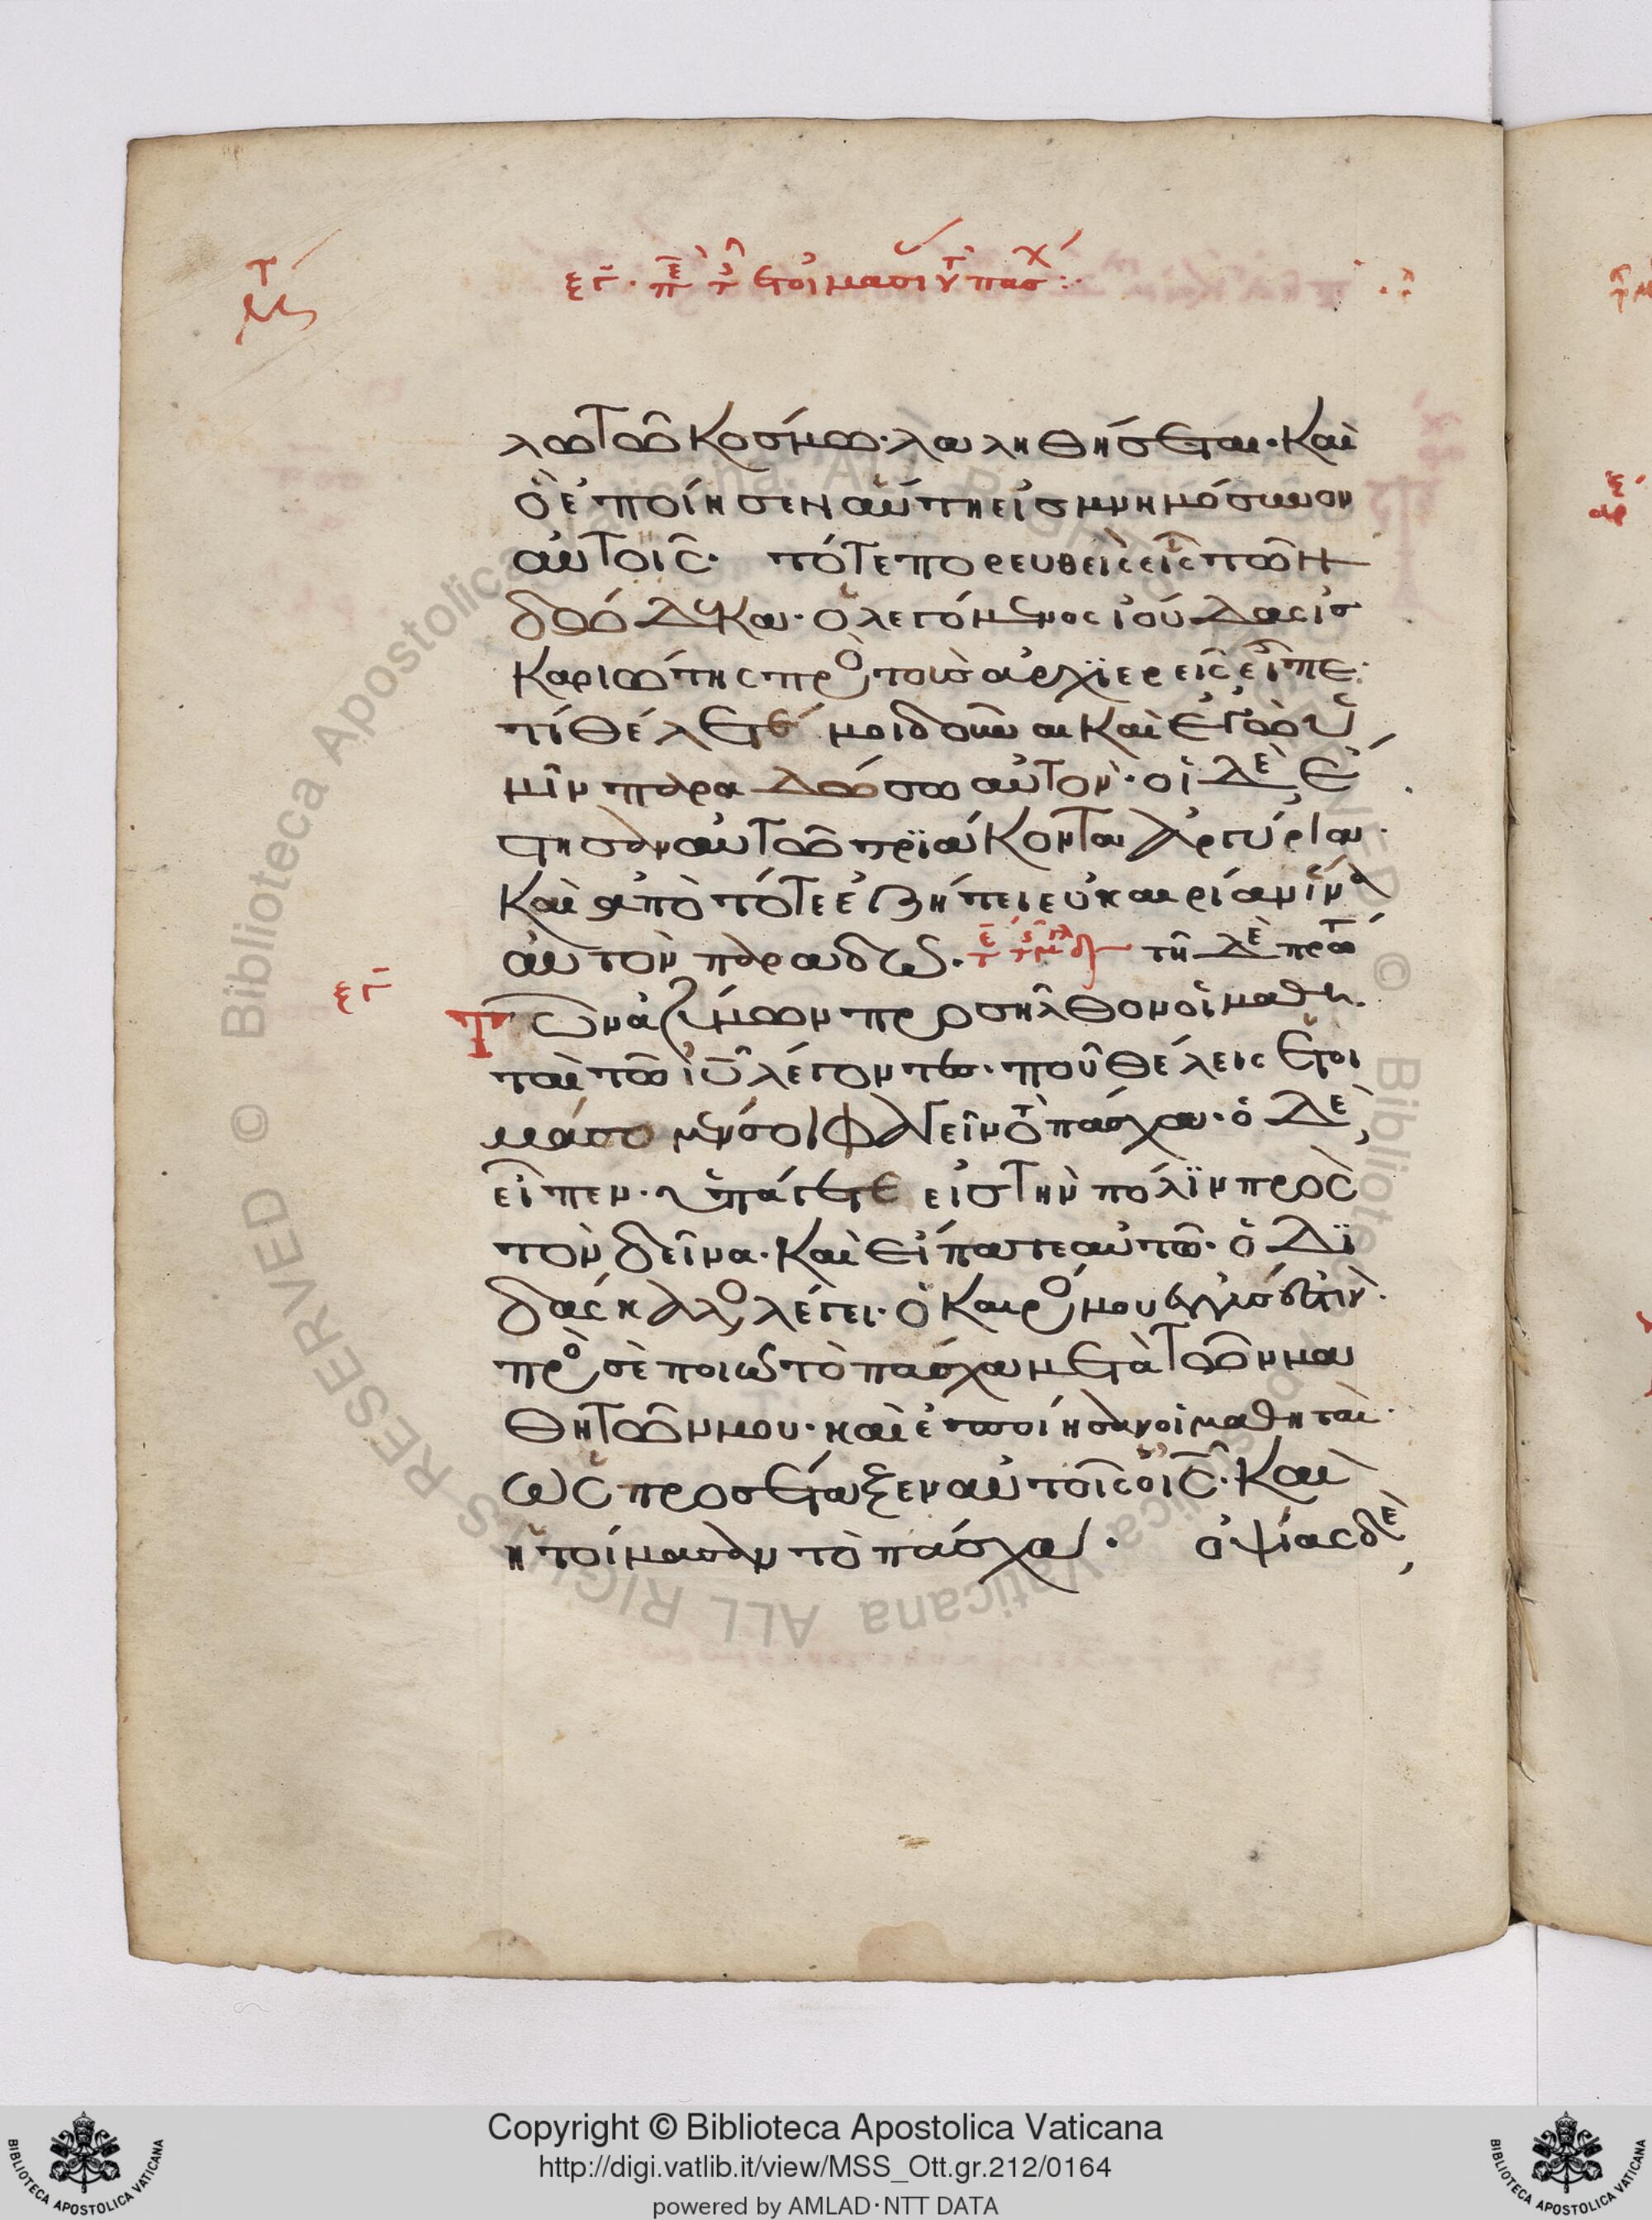 ξγ· πε τ ετοιμασι τ πασχ:·
λω τῶ κόσμω· λαληθήσεται· καὶ
ὃ ἐποίησεν αὕτη εἰς μνημόσυνον
αὐτοῖς· τότε πορευθεὶς εἷς τῶν
δώδεκα· ὁ λεγόμενος ἰούδας ἰσ
καριώτης πρὸς τοὺς ἀρχιερεῖς εἶπε·
τί θέλετέ μοι δοῦναι καὶ ἐγὼ ὑ
μῖν παραδώσω αὐτόν· οἱ δὲ ἔ
στησαν αὐτῶ τριάκοντα ἀργύρια·
καὶ ἀπὸ τότε ἐζήτει εὐκαιρίαν ἵνα
αὐτὸν παραδῶ· τῇ δὲ πρώ
ξγ
τῶν ἀζύμων προσῆλθον οἱ μαθη
ταὶ τῶ ἰυ λέγοντες· ποῦ θέλεις ἑτοι
μάσομέν σοι φαγεῖν τὸ πάσχα· ὁ δὲ
εἶπεν· ὑπάγετε εἰς τὴν πόλϊν πρὸς
τὸν δεῖνα· καὶ εἴπατε αὐτῶ· ὁ δϊ
δάσκαλος λέγει· ὁ καιρός μου ἐγγύς ἐστιν·
πρὸς σὲ ποιῶ τὸ πάσχα μετὰ τῶν μα
θητῶν μου· καὶ ἐποίησαν οἱ μαθηταὶ·
ὡς προσέταξεν αὐτοῖς ὁ ις· καὶ
ἡτοίμασαν τὸ πάσχα· ὀψίας δὲ
Copyright © Biblioteca Apostolica Vaticana
http://digi.vatlib.it/view/MSS_Ott.gr.212/0164
powered by AMLAD·NTT DATA
BIBLIOTECA APOSTOLICA VATICANA
BIBLIOTECA APOSTOLICA VATICANA